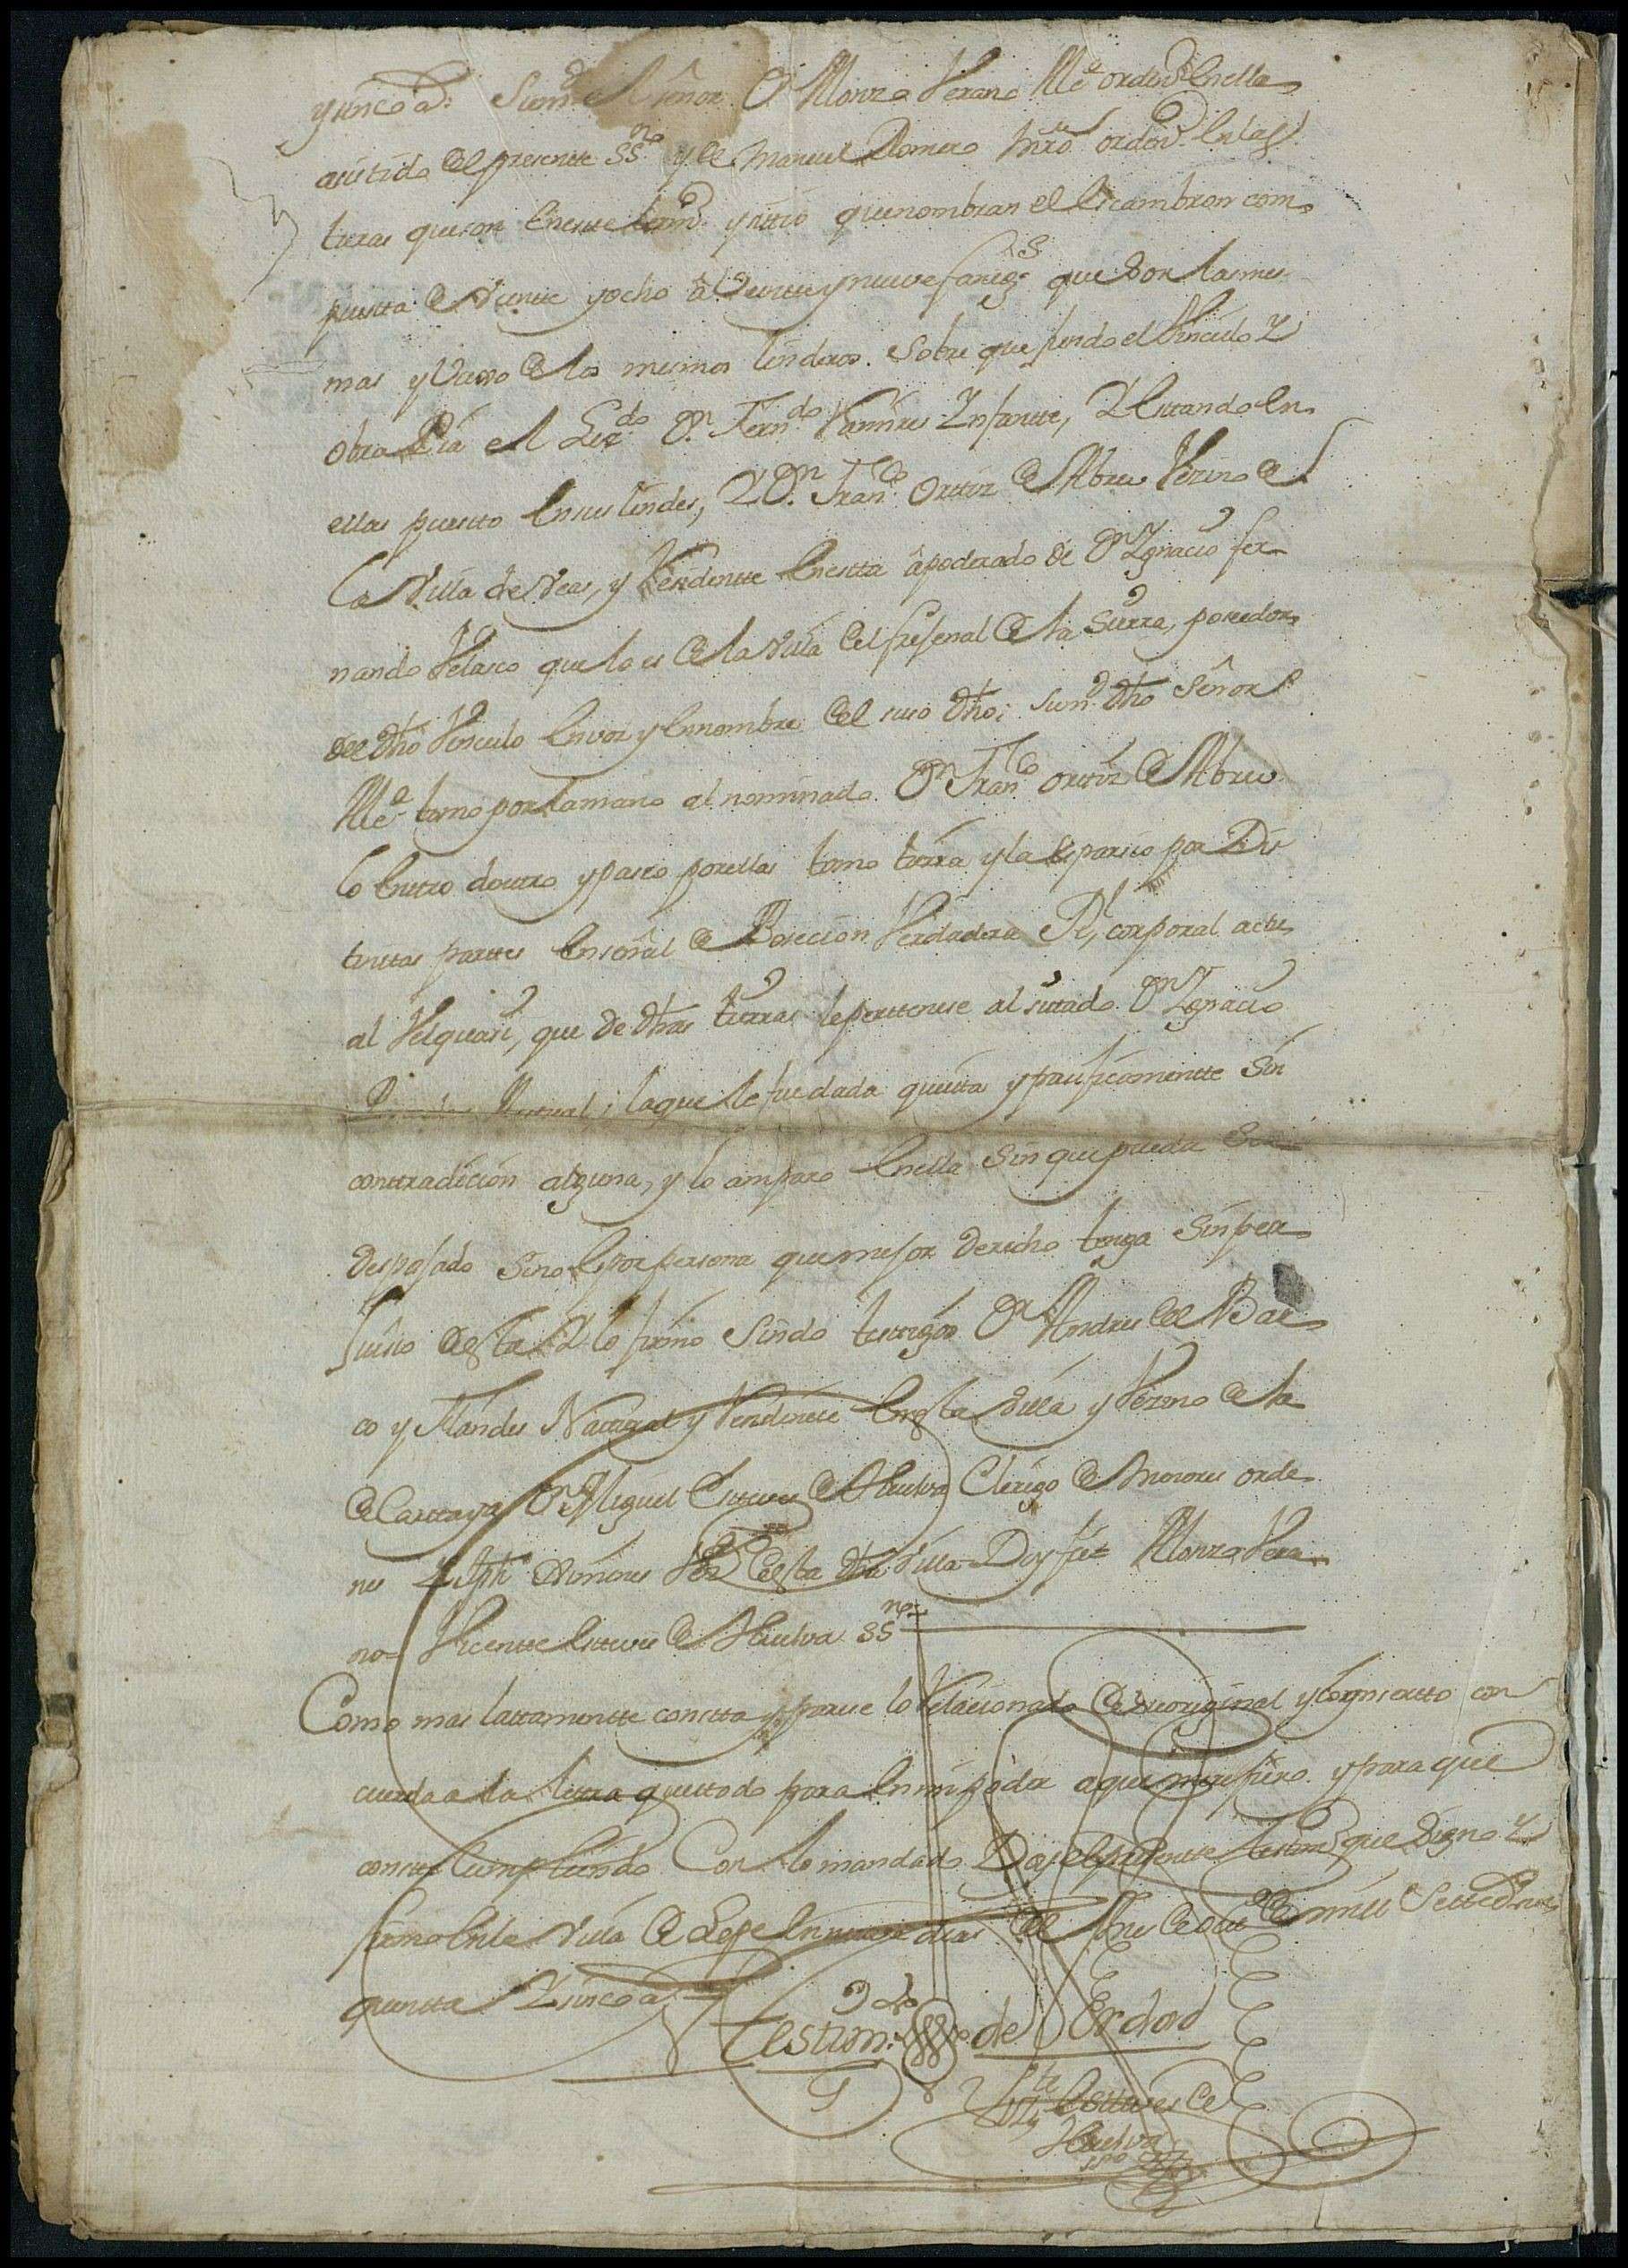 y sinco as. Siendo el señor Dn Alonzo Verano Alce ordino en ella
asistido del presente SSno y de Manuel Romero Mtro ordino en las
tierras que son en este termo y sitio que nombran el Escambron com
puesta de veinte y ocho a veinte y nueve fanegs que son las mis
mas y vaxo de los mismos linderos. Sobre que fundo el Vinculo Y
obra Pia el Lizdo Dn Ferndo Ramires Infantte, Y estando en
ellas puestto en sus lindes, Y Dn Franco Orttiz de Abreu Vezino de
la Villa de Veas, y Residentte en estta apoderado de Dn Ygnacio fer
nando Velasco que lo es de la villa del frefenal de la Sierra, poseedor
del dho Vinculo en voz y en nombre del suso dho; siendo dho Señor
Alce tomo por la mano al nominado Dn Franco Orttiz de Abreu
lo enttro dentro y paseo por ellas tomo tierra y la esparsio por Dis
tintas parttes en señal de Posecion Verdadera Rl, corporal actu
al Velquasi, que de dhas tierras le perttenese al sittado Dn Ygnacio
laque le fue dada quieta y pacificamentte sin
conttradicion alguna, y lo amparo en ella sin que pueda Ser
despojado sino es por persona que mejor derecho tenga sin per
juisio desta Y lo firmo siendo testtigos Dn Andres del Bar
co y Flandes Natural y Residente en esta Villa y Vezino de la
de Carttaya Dn Miguel Esteves de Huelva Clerigo de Menores orde
nes Y Jph Ximenes Vezo desta dha Villa = Doy fee = Alonzo Vera
no = Vicentte Esteves de Huelva SSno
Como mas lattamentte constta y parese lo Relacionado de su original y lo ynsertto con
cuerda a la letra que ttodo para en mi poder a que me refiero y para que
constte Cumpliendo Con lo mandado Doy el presentte testimo que Signo Y
firmo en la Villa de Lepe en nueve dias de mes de de mill Settecienttos
quentta Y sinco as
Testimo de Verdad
Vizte Esteves de
Huelva
SSno